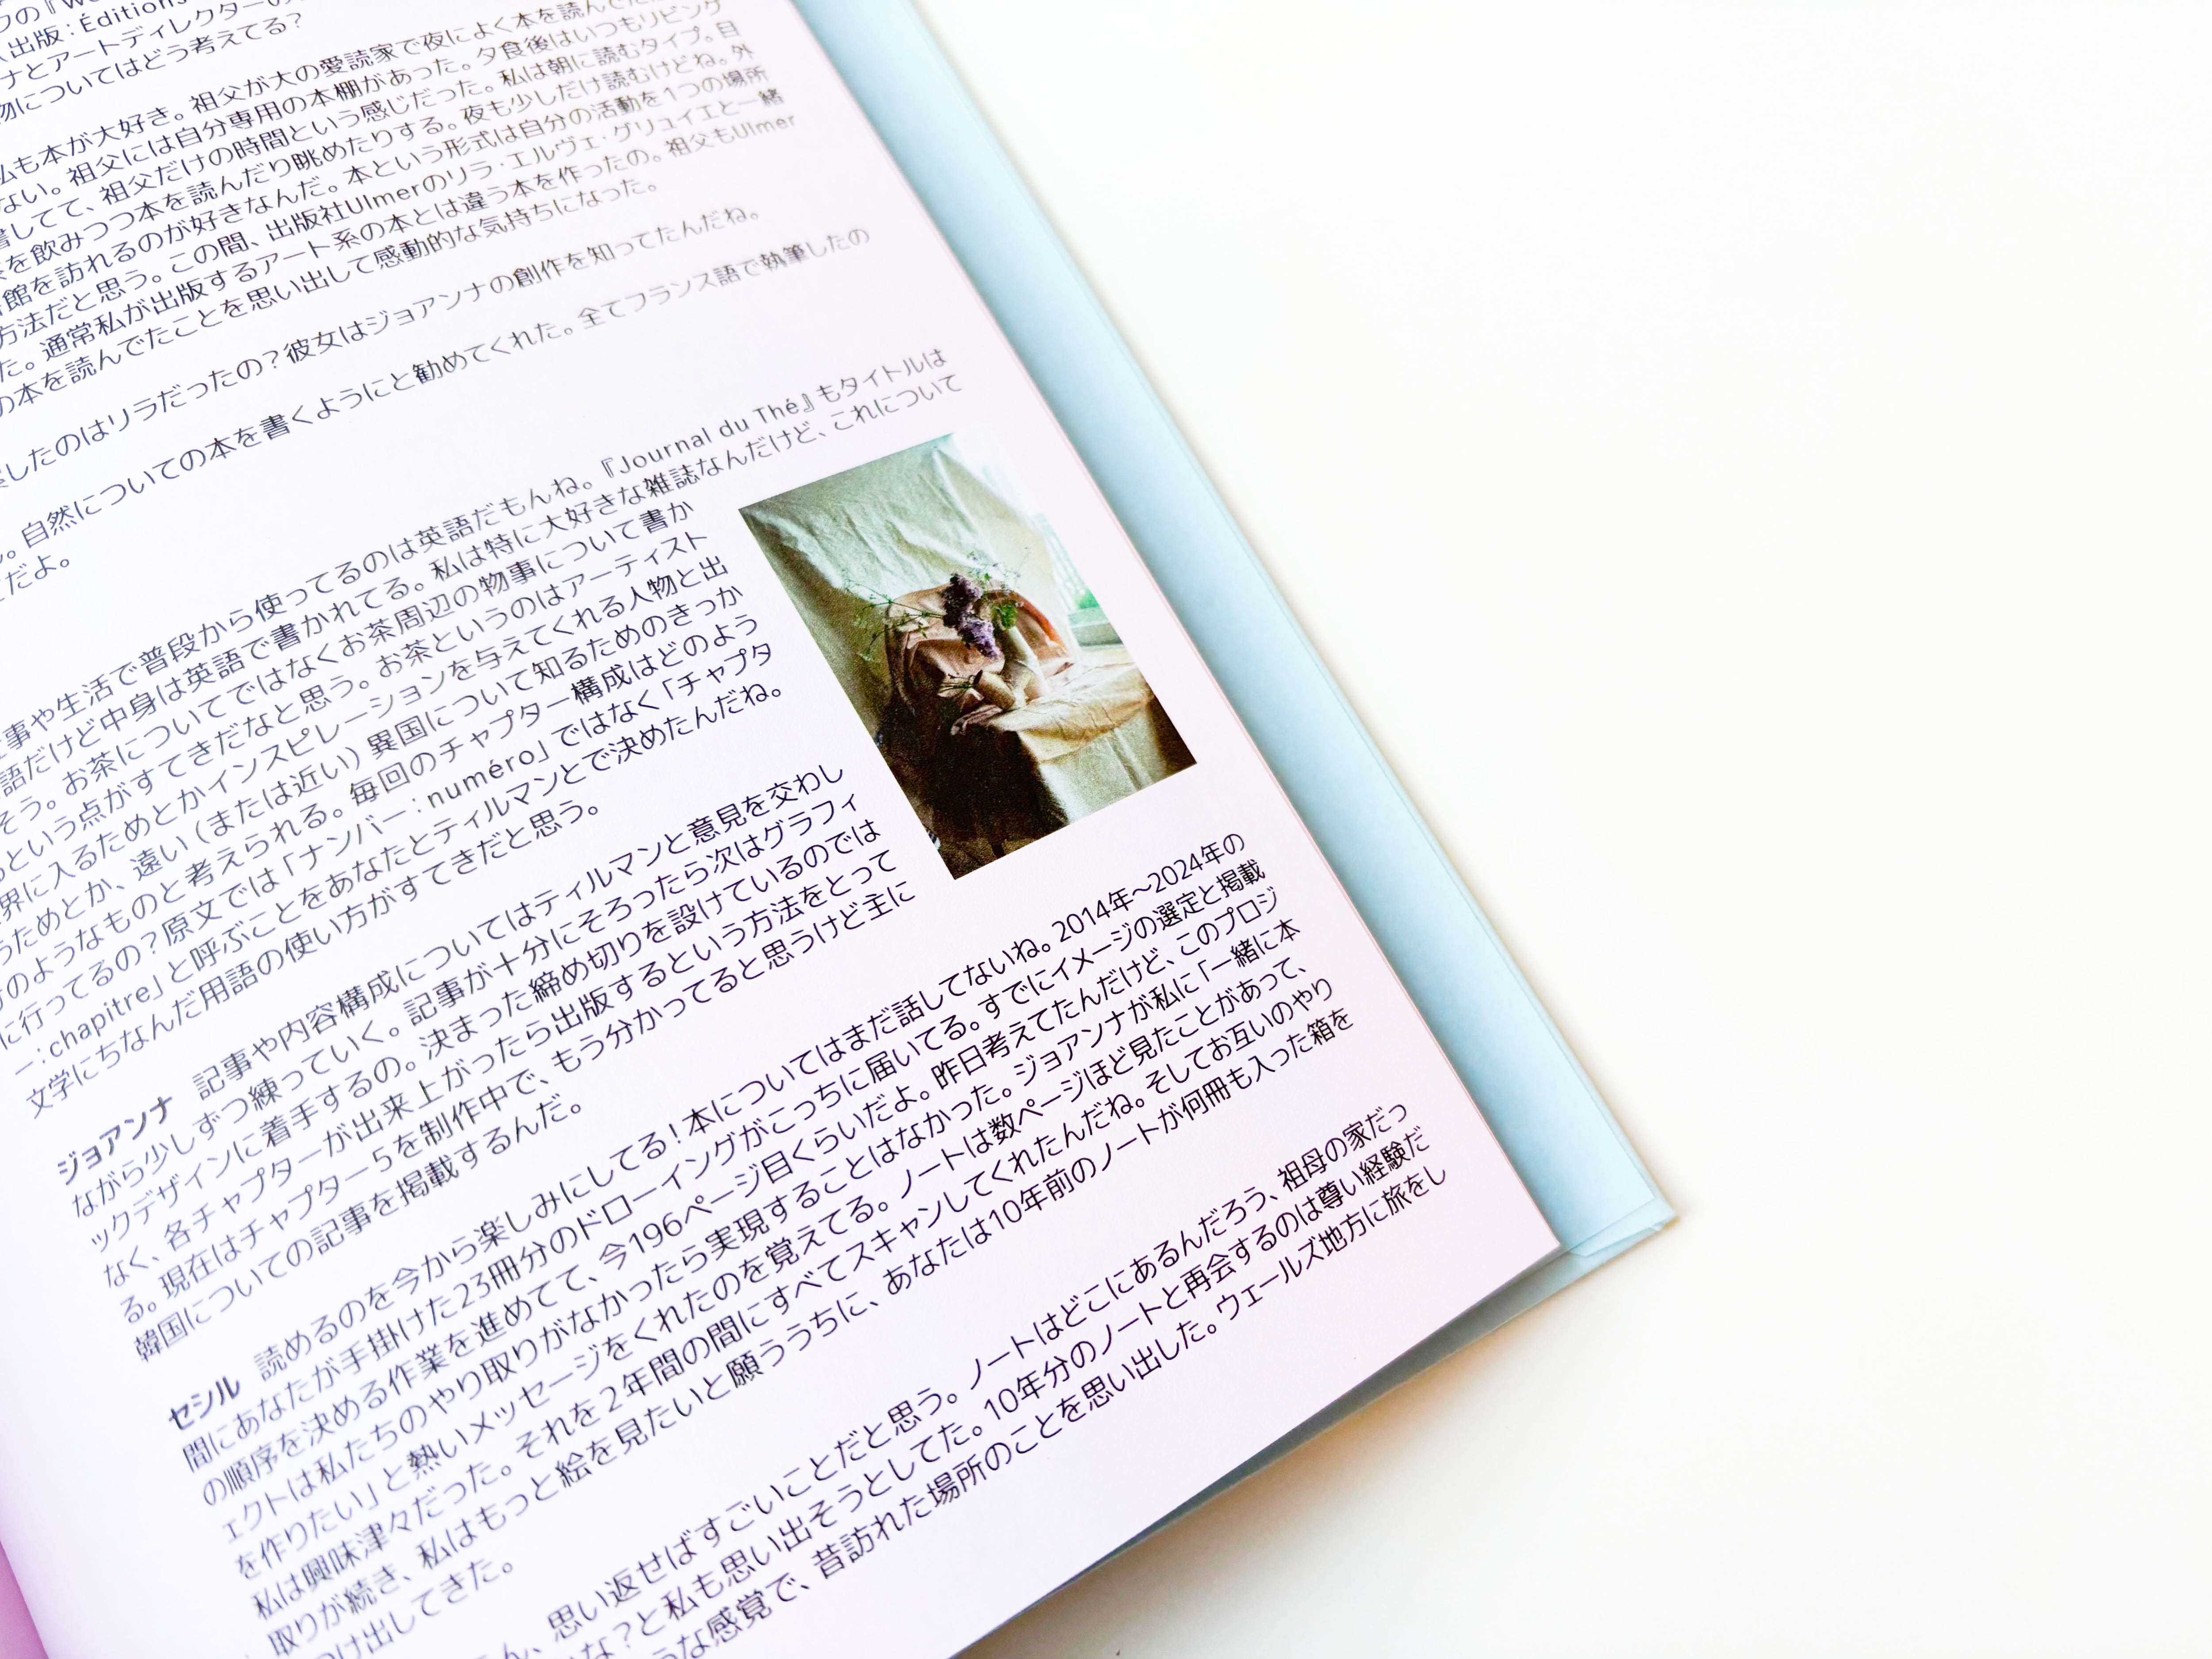 出版：Éditions
ナとアートディレクターの
物についてはどう考えてる？
私も本が大好き。祖父が大の愛読家で夜によく本を読んで
ない。祖父には自分専用の本棚があった。夕食後はいつもリビング
書してて、祖父だけの時間という感じだった。私は朝に読むタイプ。目
を飲みつつ本を読んだり眺めたりする。夜も少しだけ読むけどね。外
館を訪れるのが好きなんだ。本という形式は自分の活動を1つの場所
方法だと思う。この間、出版社Ulmerのリラ・エルヴェ・グリュイエと一緒
た。通常私が出版するアート系の本とは違う本を作ったの。祖父もUlmer
の本を読んでたことを思い出して感動的な気持ちになった。
したのはリラだったの？彼女はジョアンナの創作を知ってたんだね。
。自然についての本を書くようにと勧めてくれた。全てフランス語で執筆したの
だよ。
事や生活で普段から使ってるのは英語だもんね。『Journal du Thé』もタイトルは
語だけど中身は英語で書かれてる。私は特に大好きな雑誌なんだけど、これについて
そう。お茶についてではなくお茶周辺の物事について書か
るという点がすてきだなと思う。お茶というのはアーティスト
界に入るためとかインスピレーションを与えてくれる人物と出
うためとか、遠い（または近い）異国について知るためのきっか
けのようなものと考えられる。毎回のチャプター構成はどのよう
に行ってるの？原文では「ナンバー：numéro」ではなく「チャプタ
ー：chapitre」と呼ぶことをあなたとティルマンとで決めたんだね。
文学にちなんだ用語の使い方がすてきだと思う。
ジョアンナ　記事や内容構成についてはティルマンと意見を交わし
ながら少しずつ練っていく。記事が十分にそろったら次はグラフィ
ックデザインに着手するの。決まった締め切りを設けているのでは
なく、各チャプターが出来上がったら出版するという方法をとって
る。現在はチャプター5を制作中で、もう分かってると思うけど主に
韓国についての記事を掲載するんだ。
セシル　読めるのを今から楽しみにしてる！本についてはまだ話してないね。2014年〜2024年の
間にあなたが手掛けた23冊分のドローイングがこっちに届いてる。すでにイメージの選定と掲載
の順序を決める作業を進めてて、今196ページ目くらいだよ。昨日考えてたんだけど、このプロジ
ェクトは私たちのやり取りがなかったら実現することはなかった。ジョアンナが私に「一緒に本
を作りたい」と熱いメッセージをくれたのを覚えてる。ノートは数ページほど見たことがあって、
私は興味津々だった。それを2年間の間にすべてスキャンしてくれたんだね。そしてお互いのやり
取りが続き、私はもっと絵を見たいと願ううちに、あなたは10年前のノートが何冊も入った箱を
つけ出してきた。
ん、思い返せばすごいことだと思う。ノートはどこにあるんだろう、祖母の家だっ
な？と私も思い出そうとしてた。10年分のノートと再会するのは尊い経験だ
うな感覚で、昔訪れた場所のことを思い出した。ウェールズ地方に旅をし